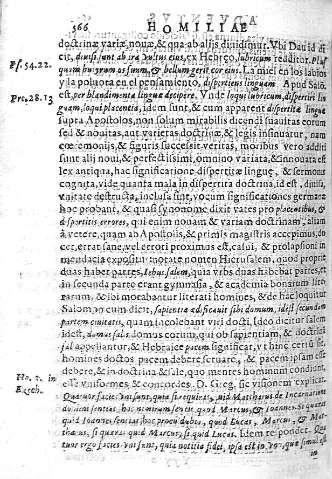 566
HOMILIAE
doctrinæ variæ, nouæ, & qua ab alijs diuidistur. Vbi Dauid di
Ps. 54. 22.
cit, diuisi sunt ab ira vultus eius, ex Hebręo, lubricum redditur.
os suum, & bellum gerit cor eius. La miel en los labios
y la en el pensamiento, dispertiens linguam Apud Salo.
Pro. 28. 13
est, per blandimenta linguæ decipere. Vnde loqui lubricum, dispertiri lin
guam, loqui placentia, idem sunt, & cum apparent dispertitæ linguæ
supra Apostolos, non solum mirabilis dicendi suauitas
sed & nouitas, aut veteras doctrinæ, & legis insinuatur, nam
cœremonijs, & figuris successit veritas, moribus vero additi
sunt alij noui, & perfectissimi, omnino variata, & innouata est
lex antiqua, hac significatione dispertitæ linguę, & sermone
cognita, vide quanta mala in dispertita doctrina, id est, diuisa,
vnitate destructa, inclusa sint, vocum significationes
probant, & quasi synonome dixit vates pro placentibus, &
dispertitis errores, qui enim nouam & variam doctrinam, aliam
à vetere, quam ab Apostolis, & primis magistris accepimus, do
cet, errat sane, vel errori proximus est, casui, & prolapsioni in
mendacia expositus notate nomen Hierusalem, quod proprie
duas habet partes, Iebus salem, quia vrbs duas habebat partes, et
in secunda parte erant gymnasia, & academia bonarum litte
rarum, & ibi morabantur literati homines, & de hac loquitur
Salomon cum dicit, sapientia ædificauit sibi domum, id est secundam
partem ciuitatis, quam incolebant viri docti, ideo dicitur salem
idest, domus salis. domus eorum, qui ob sapientiam, & doctrinã
sal appellantur, & Hebraice pacem significat, vt hinc certũ sit,
homines doctos pacem debere seruare, & pacem ipsam esse
debere, & in doctrina & sale, quo mentes hominum condiunt
Ho. 2. in
Ezech.
esse vniformes & concordes. D. Greg. sic visionem explicat
Quatuor facies vni sunt, quia si requiras, quid Matthæus de Incarnatione
domini sentiat, hoc nimirum sentit quod Marcus, & Ioannes. Si quæras quid
Ioannes sentiat hoc procul dubio, quod Lucas, Marcus, & Mat
thæus, si quæras quid Marcus, Lucas, Matthæus, & Ioannes. Idem respondet.
tuor ergo facies vni sunt, quia notitia fidei, ipsa est in vno, quæ simul est
in